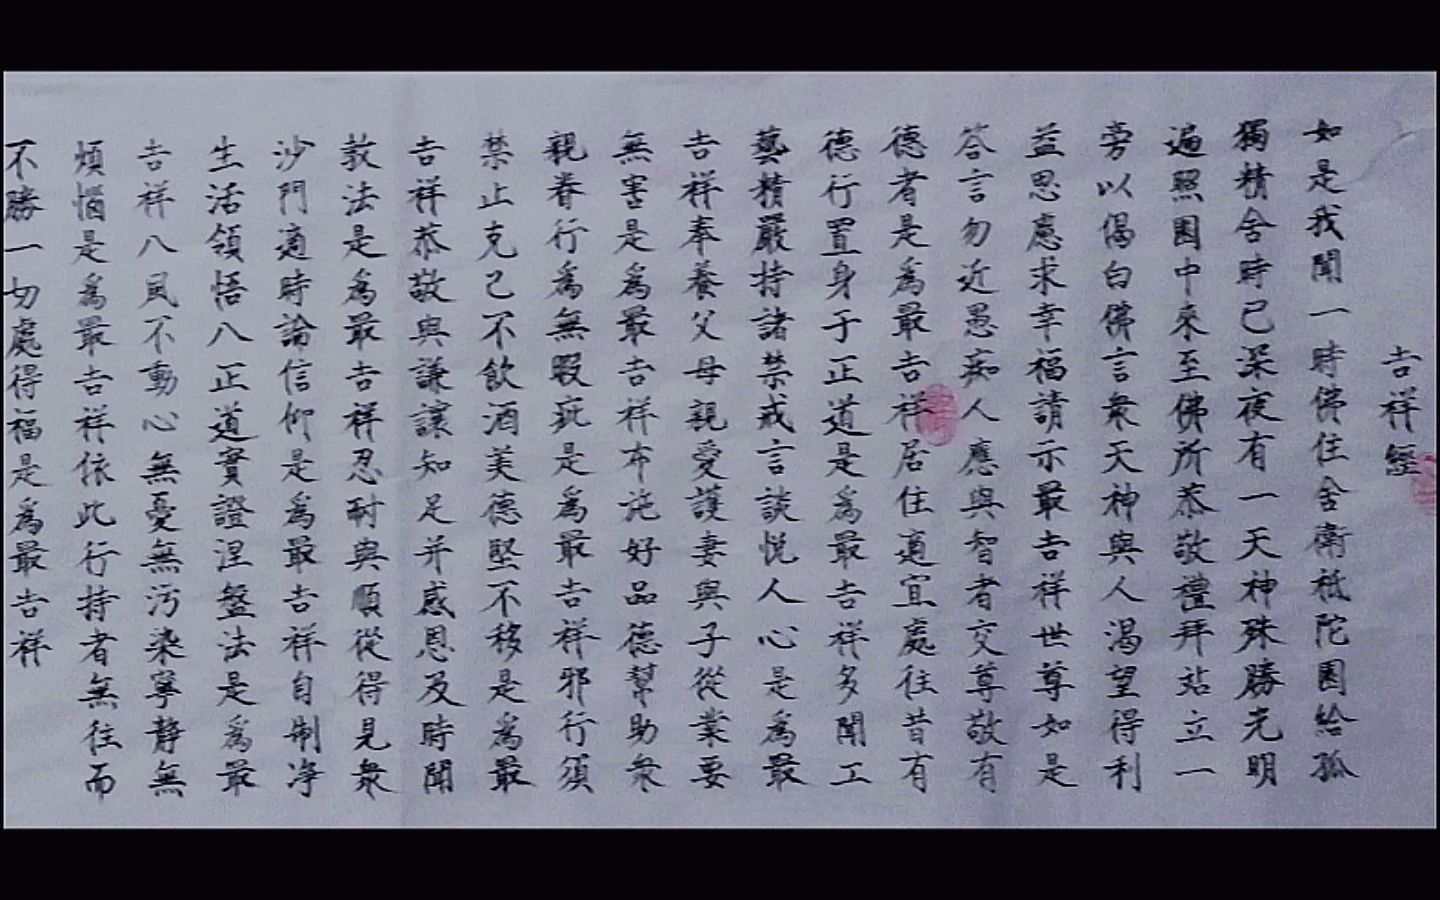 吉祥經
如是我聞一時佛住舍衛祇陀園給孤
獨精舍時已深夜有一天神殊勝光明
遍照園中來至佛所恭敬禮拜站立一
旁以偈白佛言衆天神與人渴望得利
益思慮求幸福請示最吉祥世尊如是
答言勿近愚痴人應與智者交尊敬有
德者是為最吉祥居住適宜處往昔有
德行置身于正道是為最吉祥多聞工
藝精嚴持諸禁戒言談悅人心是為最
吉祥奉養父母親愛護妻與子從業要
無害是為最吉祥布施好品德幫助衆
親眷行為無瑕疵是為最吉祥邪行須
禁止克己不飲酒美德堅不移是為最
吉祥恭敬與謙讓知足并感恩及時聞
教法是為最吉祥忍耐與順從得見衆
沙門適時論信仰是為最吉祥自制淨
生活領悟八正道實證涅盤法是為最
吉祥八風不動心無憂無污染寧静無
煩惱是為最吉祥依此行持者無往而
不勝一切處得福是為最吉祥